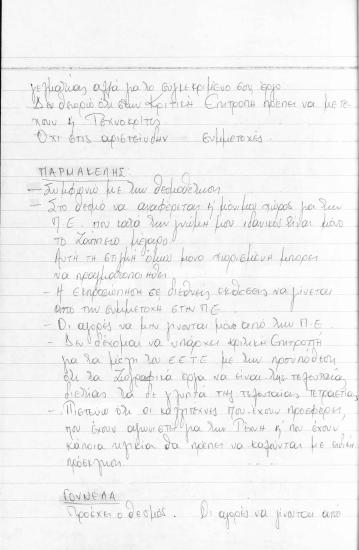 γεγματίας αλλά για το συγκεκριμένο του έργο
Δεν θεωρώ ότι στην Κριτική Επιτροπή πρέπει να μετέ-
χουν η Τεχνοκρίτες
Όχι στις αριστείνδην συμμετοχές.
ΠΑΡΜΑΚΕΛΗΣ:
— Συμφωνώ με την θεσμοθέτηση
— Στο θεσμό να αναφέρεται η μόνιμος χώρος για την
Π.Ε. που κατά την γνώμη μου ιδανικός είναι μόνο
το Ζάππειο μέγαρο.
Αυτή τη στιγμή όμως μόνο χωρισμένη μπορεί
να πραγματοποιηθεί.
- Η εκπροσώπηση σε διεθνείς εκθέσεις να γίνεται
από την συμμετοχή στην Π.Ε.
- Οι αγορές να μην γίνονται μόνο από την Π.Ε.
- Δεν δέχομαι να υπάρχει κριτική Επιτροπή
για τα μέλη του ΕΕΤΕ με την προϋπόθεση
ότι τα ζωγραφικά έργα να είναι της τελευταίας
διετίας και τα γλυπτά της τελευταίας τετραετίας
- Πιστεύω ότι οι καλλιτέχνες που έχουν προσφέρει,
που έχουν αγωνιστεί για την Τέχνη ή που έχουν
κάποια ηλικία θα πρέπει να καλούνται με ειδική
πρόσκληση.
ΓΟΥΝΕΛΑ
Προέχει ο θεσμός. Οι αγορές να γίνονται από